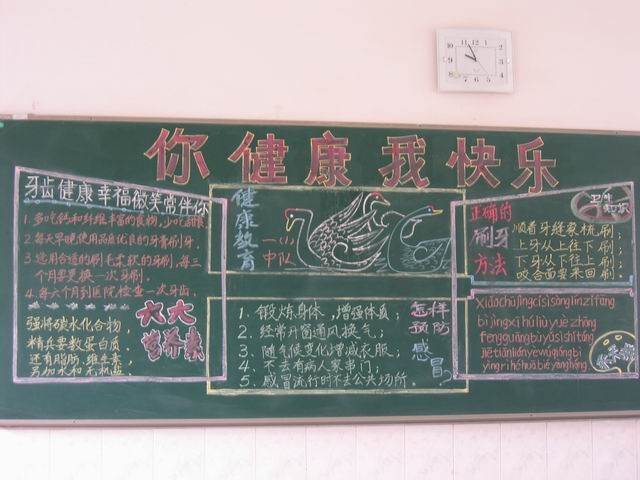 你健康我快乐
牙齿健康幸福微笑常伴你
1. 多吃钙和纤维丰富的食物,少吃甜食.
2. 每天早晚使用品质优良的牙膏刷牙.
3. 选用合适的刷毛柔软的牙刷,每三
个月要更换一次牙刷.
4. 每六个月到医院检查一次牙齿.
六大
营养素
强将碳水化合物,
精兵要数蛋白质.
还有脂肪.维生素
另加水和无机盐.
健康教育
一(2)
中队
1. 锻炼身体,增强体质;
2. 经常开窗通风换气;
3. 随气候变化增减衣服;
4. 不去有病人家串门;
5. 感冒流行时不去公共场所.
怎样
预防
感冒?
正确的
刷牙
方法
卫生
知识
顺着牙缝家梳刷;
上牙从上往下刷;
下牙从下往上刷;
咬合面要来回刷.
xiǎochǒngcísìsònglínzǐfāng
bǐ jìngxī hú liǔ yuè zhōng
fēngguāngbùyǔsìshítóng
jiētiānliányèwúqióngbì
yìngrì hé huā bié yàng hóng